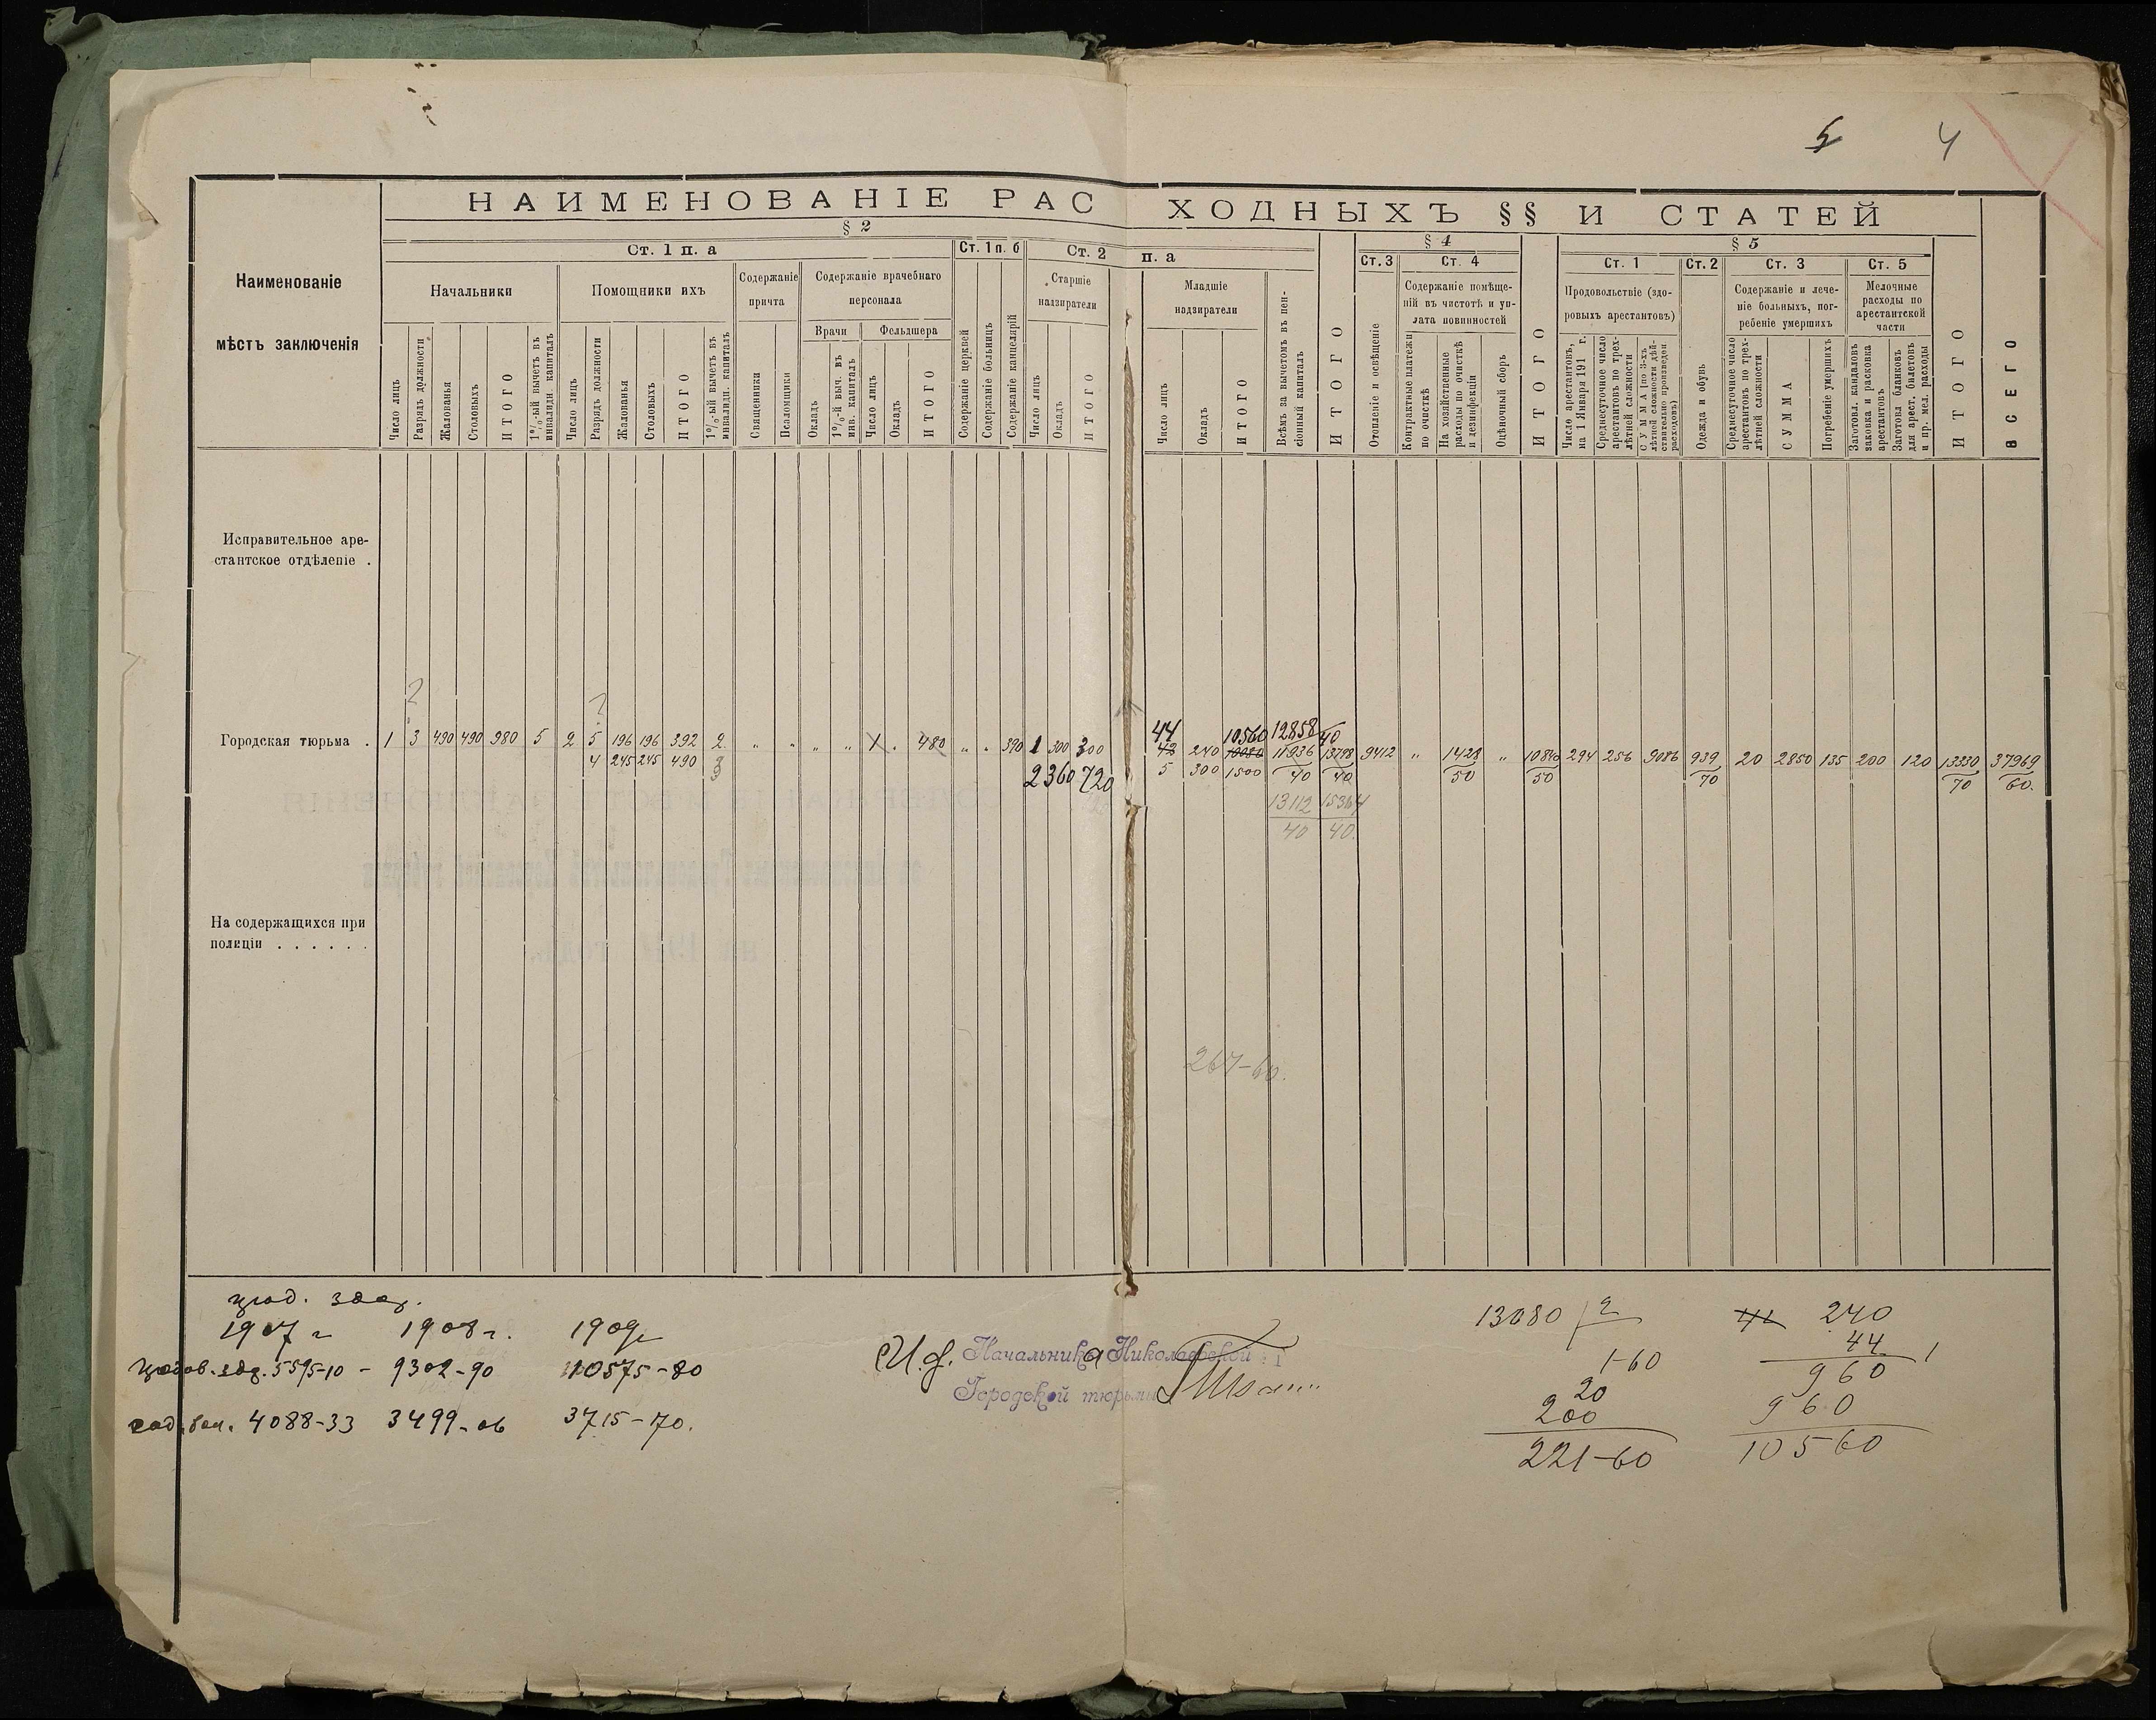 5 4
НАИМЕНОВАНІЕ РАСХОДНЫХЪ §§ И СТАТЕЙ
Наименованіе
мѣстъ заключенія
§ 2
§ 4
§ 5
Ст. 1 п. а
Ст. 1 п. б
Ст. 2 п. а
Ст. 3
Ст. 4
Ст. 1
Ст. 2
Ст. 3
Ст. 5
Начальники
Помощники ихъ
Содержаніе
причта
Содержаніе врачебнаго
персонала
Врачи
Фельдшера
Старшіе
надзиратели
Младшіе
надзиратели
Содержаніе помѣще-
ній въ чистотѣ и уп-
лата повинностей
Продовольствіе (здо-
ровыхъ арестантовъ)
Содержаніе и лече-
ніе больныхъ, пог-
ребеніе умершихъ
Мелочные
расходы по
арестантской
части
Число лицъ
Разрядъ должности
Жалованья
Столовыхъ
ИТОГО
1%-ый вычетъ въ
инвалидн. капиталъ
Число лицъ
Разрядъ должности
Жалованья
Столовыхъ
ИТОГО
1%-ый вычетъ въ
инвалидн. капиталъ
Священники
Псаломщики
Окладъ
1%-й выч. въ
инв. капиталъ
Число лицъ
Окладъ
ИТОГО
Содержаніе церквей
Содержаніе больницъ
Содержаніе канцелярій
Число лицъ
Окладъ
ИТОГО
Число лицъ
Окладъ
ИТОГО
Всѣмъ за вычетомъ въ пен-
сіонный капиталъ
ИТОГО
Отопленіе и освѣщеніе
Контрактные платежи
по очисткѣ
На хозяйственные
расходы по очисткѣ
и дезинфекціи
Оцѣночный сборъ
ИТОГО
Число арестантовъ,
на 1 Января 191 г.
Среднесуточное число
арестантовъ по трех-
лѣтней сложности
СУММА (по 3-хъ
лѣтней сложности дѣй-
ствительно произведен
расходовъ)
Одежда и обувь
Среднесуточное число
арестантовъ по трех-
лѣтней сложности
СУММА
Погребеніе умершихъ
Заготовл. кандаловъ
заковка и расковка
арестантовъ
Заготовл бланковъ
для арест. билетовъ
и пр. мел. расходы
ИТОГО
ВСЕГО
Исправительное аре-
стантское отдѣленіе .
? ?
44 10560 12858/40
Городская тюрьма . 1 3 490 490 980 5 2 5 196 196 392 2 " " " " 1 . 480 " " 390 1 300 300 42 240 10080 11936/40 13798/40 9412 " 1428/50 " 10840/50 294 256 9086 939/70 20 2850 135 200 120 13330/70 37969/60.
4 245 245 490 2 360 720 5 300 1500
13112/40 15364/40
На содержащихся при
полиціи . . . . . .
267-60.
1907 г 1908 г. 1909 г
5595-10 - 9302-90 10575-80
4088-33 3499-06 3715-70.
И. д. Начальника Николаевской
Городской тюрьмы
13080 2
1-60
20
200
221-60
240
44
960
960
10560